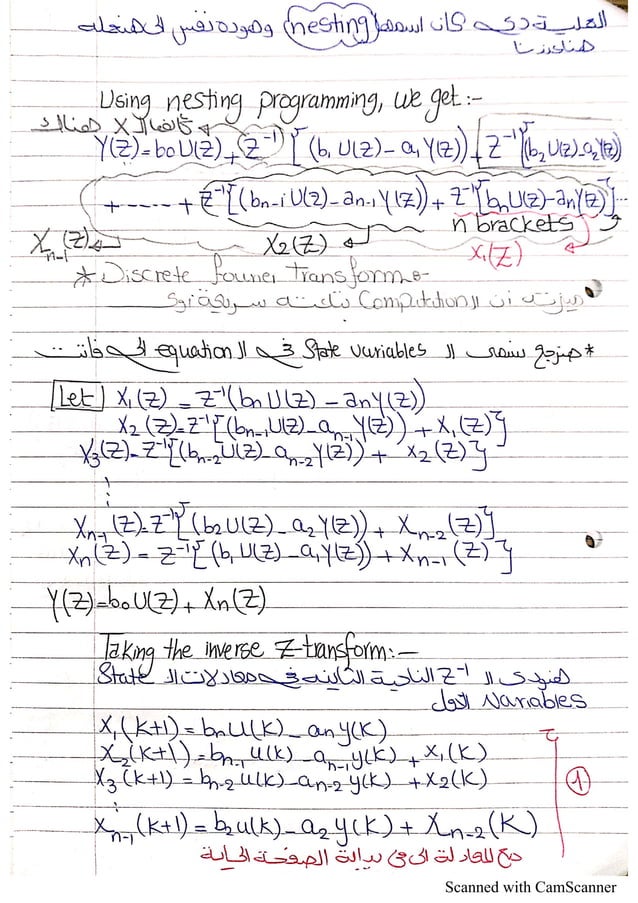 العملية دي كان اسمها (nesting) وهو ده نفس اللي هنعمله
هنا برضنا
Using nesting programming, we get:-
X هناك
Y(Z)=b₀U(Z)+Z⁻¹[(b₁U(Z)-a₁Y(Z))+Z⁻¹[(b₂U(Z)-a₂Y(Z))
+.....+Z⁻¹[(bn-1U(Z)-an-1Y(Z))+Z⁻¹[bnU(Z)-anY(Z)]...
n brackets
Xn-1(Z) X₂(Z) X₁(Z)
*Discrete fourier transform
ميزته ان ال Computation بتاعته سريعة
*هنرجع نسمى ال State variables في ال equation اللي فاتت
Let X₁(Z) = Z⁻¹(bnU(Z) - anY(Z))
X₂(Z)=Z⁻¹[(bn-1U(Z)-an-1Y(Z)) + X₁(Z)]
X₃(Z)=Z⁻¹[(bn-2U(Z)-an-2Y(Z)) + X₂(Z)]
⋮
Xn-1(Z)=Z⁻¹[(b₂U(Z)-a₂Y(Z)) + Xn-2(Z)]
Xn(Z) = Z⁻¹[(b₁U(Z)-a₁Y(Z)) + Xn-1(Z)]
Y(Z)=b₀U(Z)+Xn(Z)
Taking the inverse Z-transform:-
هنودى ال Z⁻¹ الناحية التانية في معادلات ال State
Variables الأول
X₁(K+1) = bnU(K)-any(K)
X₂(K+1)=bn-1u(K)-an-1y(K)+X₁(K)
X₃(K+1)=bn-2u(K)-an-2y(K)+X₂(K)
①
⋮
Xn-1(K+1)=b₂u(K)-a₂y(K)+Xn-2(K)
مع المعادلة اللي في بداية الصفحة الجاية
Scanned with CamScanner